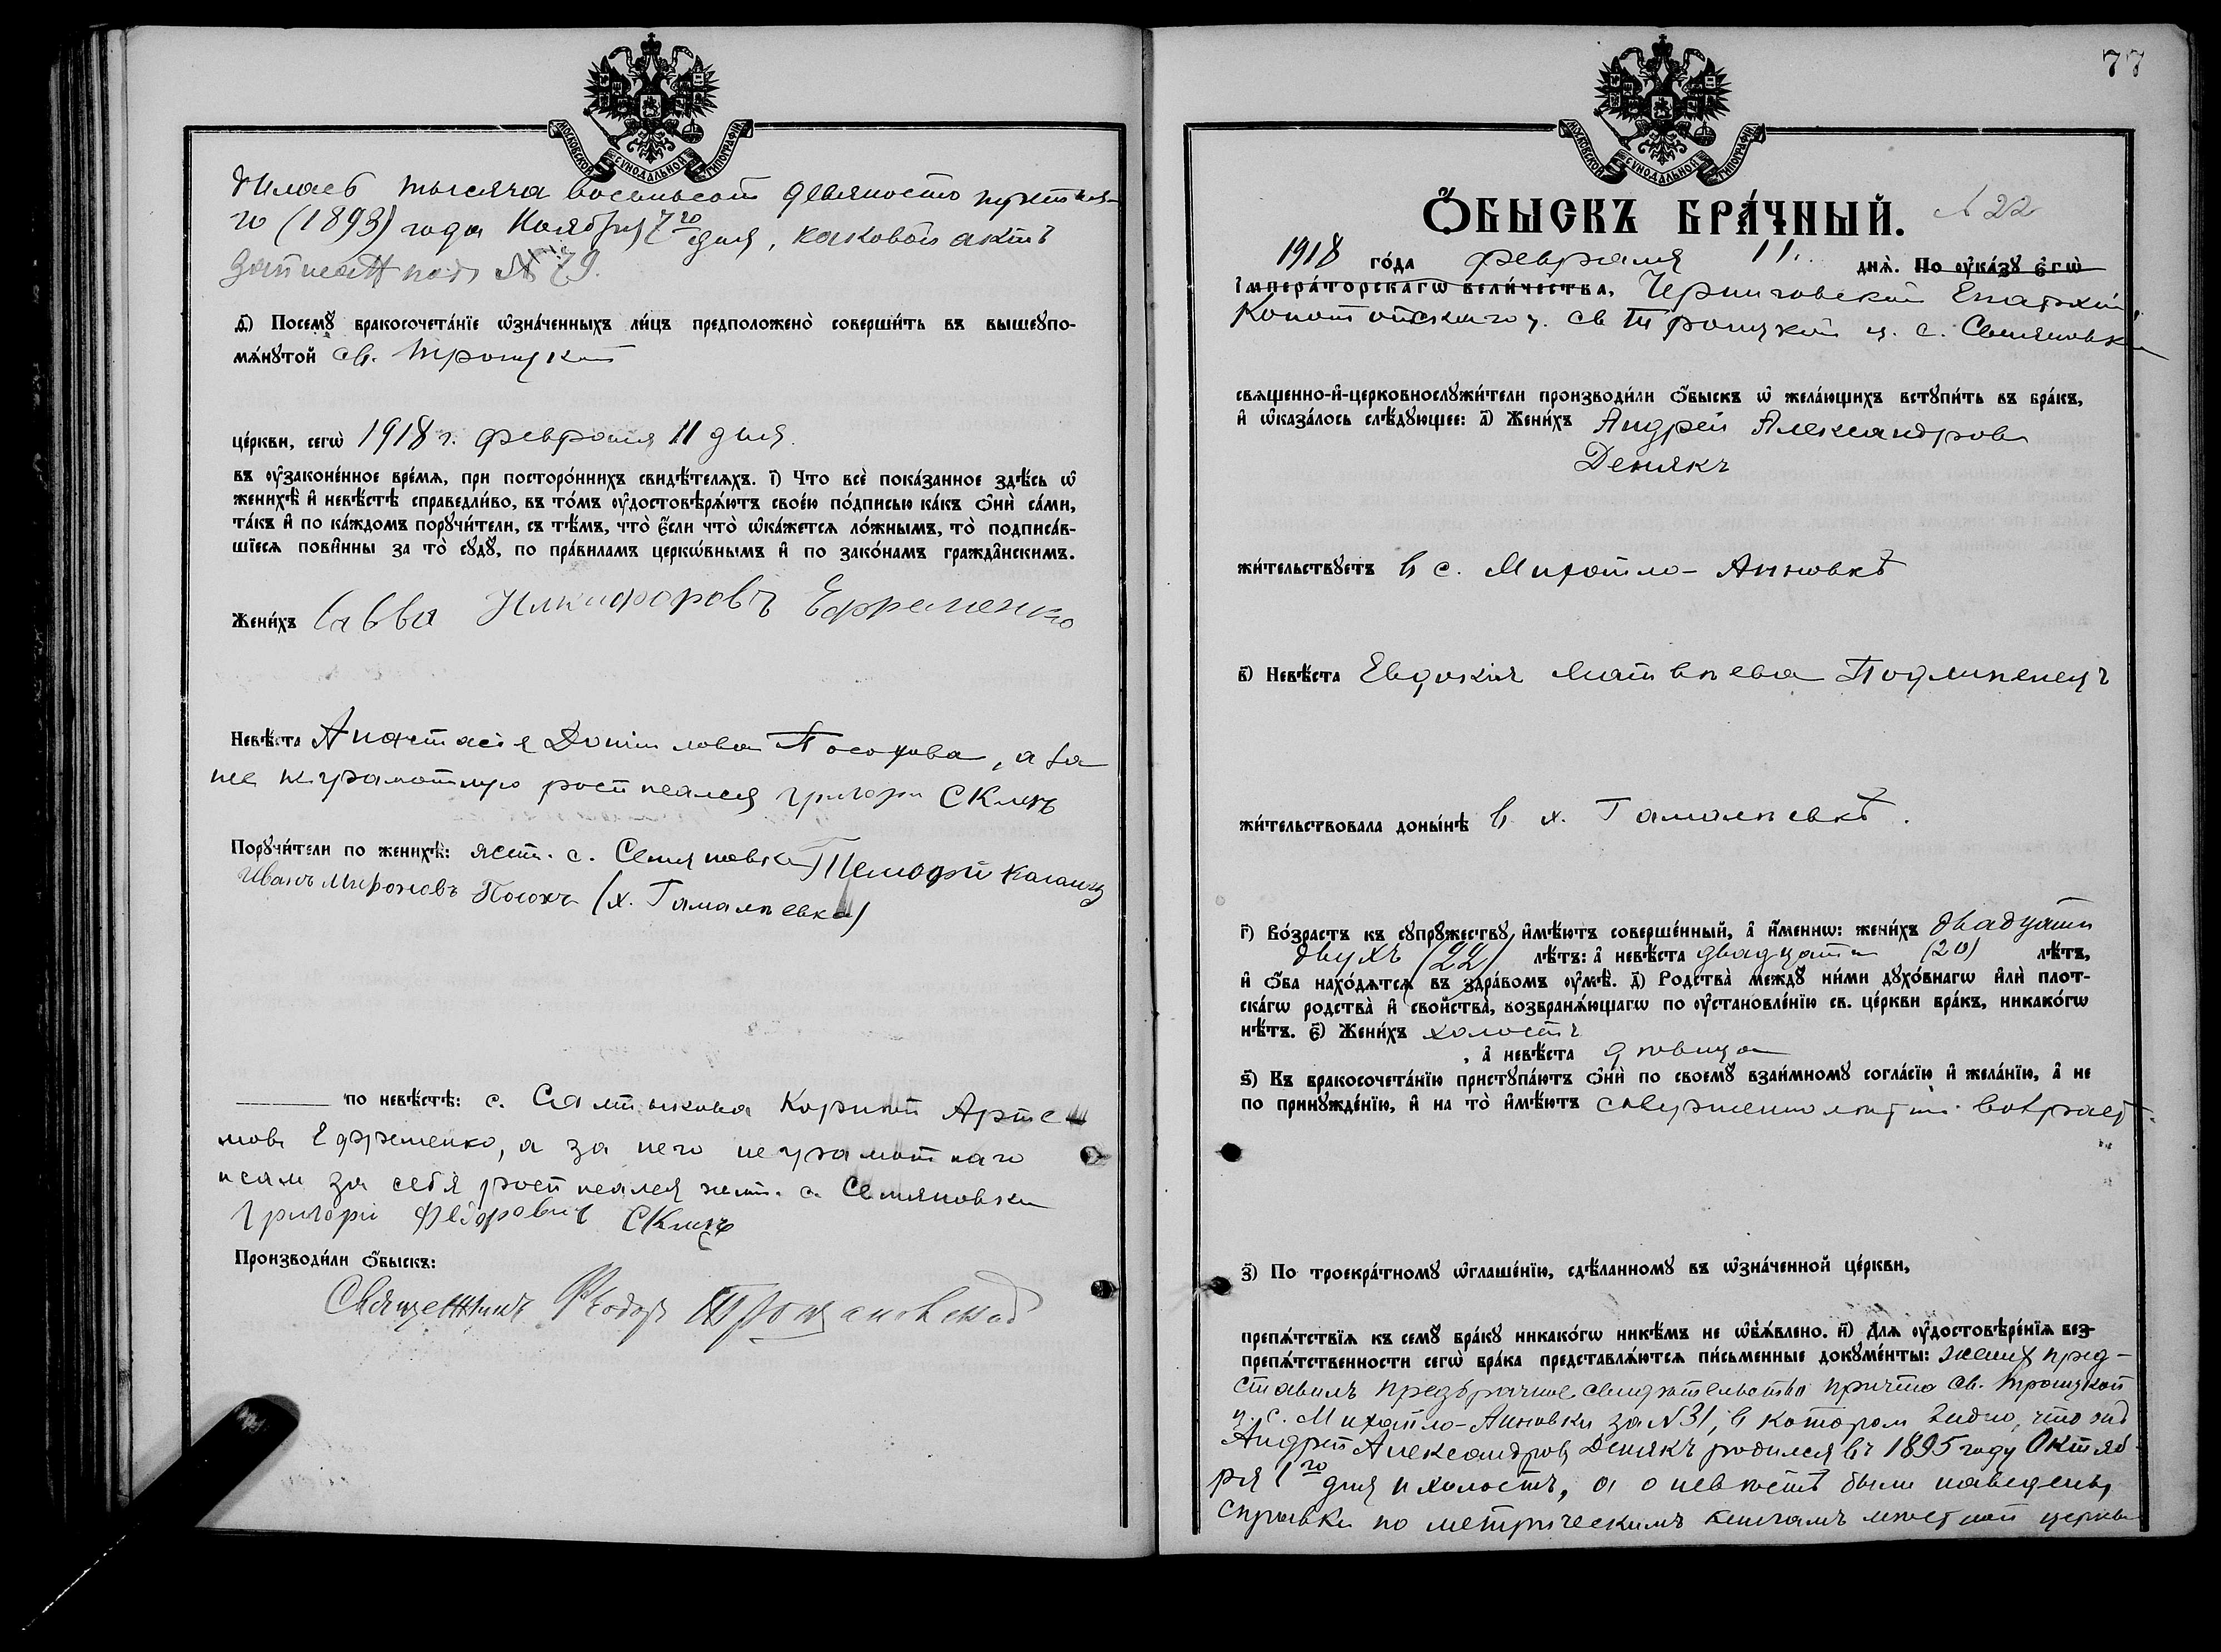 МОСКОВСКОЙ СѴНОДАЛЬНОЙ ТИПОГРАФІИ
дилась тысяча восемьсотъ девяносто
го (1893) года Ноября 7го дня, каковой актъ
записанъ подъ № 79.
д҃) Посемꙋ̀ бракосочета́нїе ѡ҆зна́ченныхъ ли́цъ предположено̀ соверши́ть въ вышеꙋпо-
мѧ́нꙋтой св. Троицкой
це́ркви, сегѡ̀ 1918 г. февраля 11 дня.
въ ᲂу҆законе́нное вре́мѧ, при посторо́ннихъ свидѣ́телѧхъ. і҃) Что всѐ пока́занное здѣ́сь ѡ҆
женихѣ̀ и҆ невѣ́стѣ справедли́во, въ то́мъ ᲂу҆достовѣрѧ́ютъ свое́ю по́дписью ка́къ ѻ҆нѝ са́ми,
та́къ и҆ по ка́ждомъ порꙋчи́тели, съ тѣ́мъ, что̀ є҆́сли что̀ ѡ҆ка́жетсѧ ло́жнымъ, то̀ подписа́в-
шїесѧ пови́нны за то̀ сꙋдꙋ̀, по пра́виламъ церкѡ́внымъ и҆ по зако́намъ гражда́нскимъ.
Жени́хъ Савва Никифоровъ Ефременко
Невѣ́ста Анастасія Данилова Посохова, а за
нее неграмотную росписался Григорій СКлярь
Порꙋчи́тели по женихѣ̀: жит. с. Семяновки Тимофій
Иванъ Мироновъ Посохъ (х. Гамалѣевка)
по невѣ́стѣ: с. Салтыкова Корній Арте-
мовъ Ефременко, а за него неграмотнаго
и самъ за себя росписался жит. с. Семяновки
Григорій Федоровичъ СКлярь
Производи́ли ѻ҆́быскъ:
Священникъ Ѳеодоръ
77
МОСКОВСКОЙ СѴНОДАЛЬНОЙ ТИПОГРАФІИ
Ѻ҆́БЫСКЪ БРА́ЧНЫЙ. № 22
1918 го́да февраля 11. днѧ̀. По ᲂу҆ка́зꙋ є҆гѡ̀
і҆мпера́торскагѡ вели́чества, Черниговской Епархіи,
Конотопскаго у. св Троицкой ц. с. Семяновки
свѧщенно-и҆-церковнослꙋжи́тели производи́ли ѻ҆́быскъ ѡ҆ жела́ющихъ встꙋпи́ть въ бра́къ,
и҆ ѡ҆каза́лось слѣ́дꙋющее: а҃) Жени́хъ Андрей Александровъ
Демякъ
жи́тельствꙋетъ в с. Михайло-Анновкѣ
в҃) Невѣ́ста Евдокія Матвѣева Подлипенецъ
жи́тельствовала доны́нѣ в х. Гамалѣевкѣ.
г҃) Во́зрастъ къ сꙋпрꙋ́жествꙋ и҆мѣ́ютъ соверше́нный, а҆ и҆́меннѡ: жени́хъ двадцати
двухъ (22) лѣ́тъ: а҆ невѣ́ста двадцати (20) лѣ́тъ,
и҆ ѻ҆́ба нахо́дѧтсѧ въ здра́вомъ ᲂу҆мѣ̀. д҃) Родства̀ междꙋ̀ ни́ми дꙋхо́внагѡ и҆лѝ плот-
ска́гѡ родства̀ и҆ сво́йства̀, возбранѧ́ющагѡ по ᲂу҆становле́нїю св. це́ркви бра́къ, никако́гѡ
нѣ́тъ. є҃) Жени́хъ холостъ
, а҆ невѣ́ста дѣвица
ѕ҃) Къ бракосочета́нїю пристꙋпа́ютъ ѻ҆нѝ по своемꙋ̀ взаи́мномꙋ согла́сїю и҆ жела́нїю, а҆ не
по принꙋжде́нїю, и҆ на то̀ и҆мѣ́ютъ совершеннолѣтній возраст.
з҃) По троекра́тномꙋ ѡ҆глаше́нїю, сдѣ́ланномꙋ въ ѡ҆зна́ченной це́ркви,
препѧ́тствїѧ къ семꙋ̀ бра́кꙋ никако́гѡ никѣ́мъ не ѡ҆б̾ѧ́влено. и҃) Длѧ ᲂу҆достовѣре́нїѧ без-
препѧ́тственности сегѡ̀ бра́ка представлѧ́ютсѧ пи́сьменные докꙋме́нты: жених пред-
ставилъ предбрачное свидѣтельство причта св. Троицкой
ц. с. Михайло-Анновки за № 31, в котором видно, что
Андрей Александров Демякъ родился въ 1895 году Октяб
ря 1го дня и холостъ, а о невѣстѣ были наведены
справки по метрическимъ книгамъ мѣстной церкви